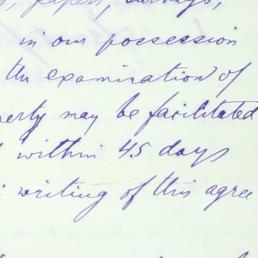 papers, drawings,
in our possession
the examination of
perty may be facilitated
within 45 days
writing of this agree